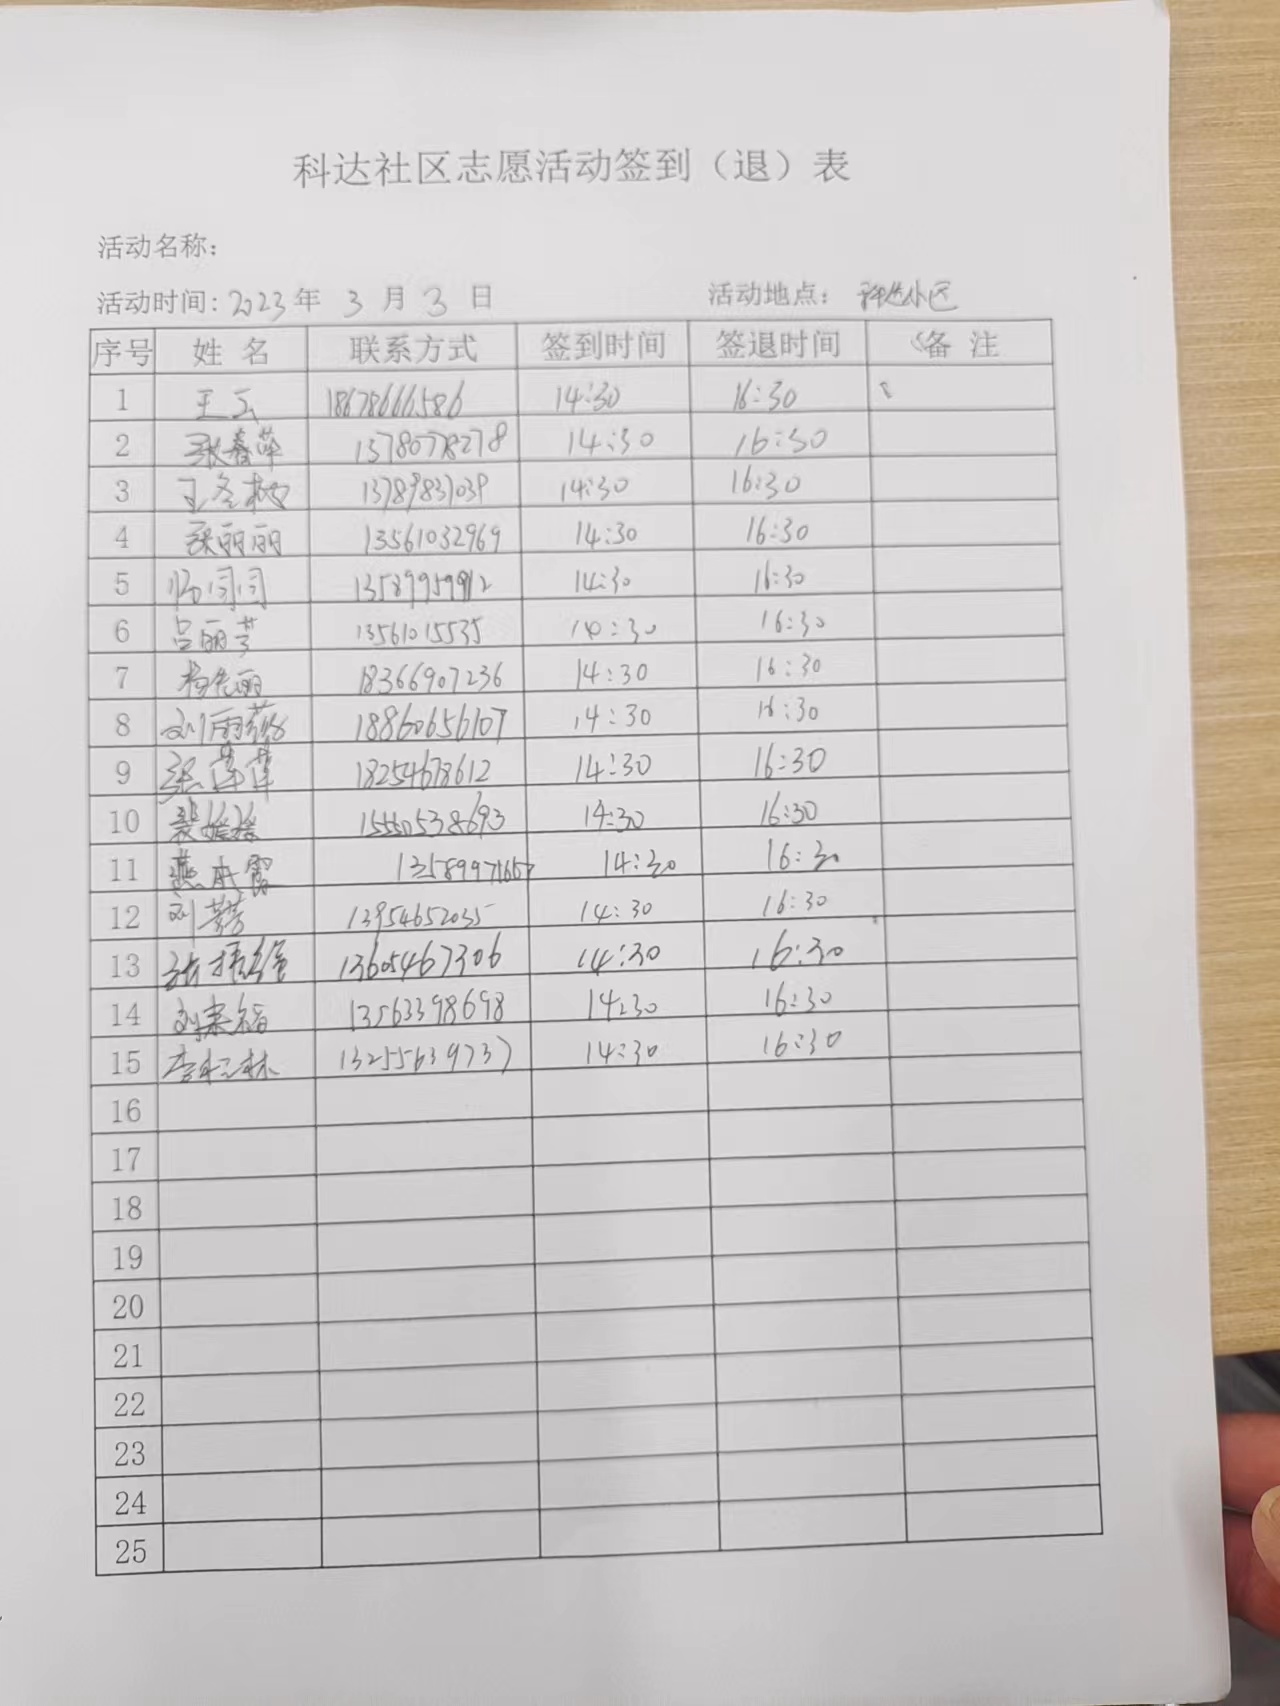 科达社区志愿活动签到（退）表
活动名称：
活动时间：2023年 3 月 3 日 活动地点： 科达小区
序号 姓 名 联系方式 签到时间 签退时间 备 注
1 王云 18678666586 14:30 16:30
2 张春苹 13780778278 14:30 16:30
3 王冬梅 14:30 16:30
4 张丽丽 13561032969 14:30 16:30
5 闫闫 14:30 16:30
6 吕丽芳 13561015535 14:30 16:30
7 杨 丽 18366907236 14:30 16:30
8 刘雨 18860656107 14:30 16:30
9 张萍萍 18254678612 14:30 16:30
10 媛媛 15550538693 14:30 16:30
11 燕 霞 14:30 16:30
12 刘 13954652035 14:30 16:30
13 13605467306 14:30 16:30
14 刘 13563398698 14:30 16:30
15 李 林 13255639737 14:30 16:30
16
17
18
19
20
21
22
23
24
25